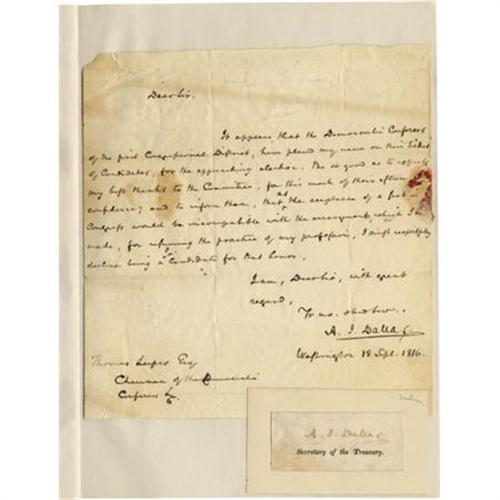 Dear Sir.
It appears that the Democratic Conferees
of the first Congressional District, have placed my name on their ticket
of Candidates, for the approaching election. Be so good as to express
my best thanks to the Committee, for this mark of their esteem
confidence; and to inform them, that as the acceptance of a seat in
Congress would be incompatible with the arrangements, which I have
made, for resuming the practice of my profession, I must respectfully
decline being a Candidate for that honor.
I am, Dear Sir, with great
regard,
Yr mo. obed Serv.
A. J. Dallas
Washington 18 Sept. 1816.
Thomas Leiper Esq
Chairman of the Democratic
Conferees &c.
A. J. Dallas
Secretary of the Treasury.